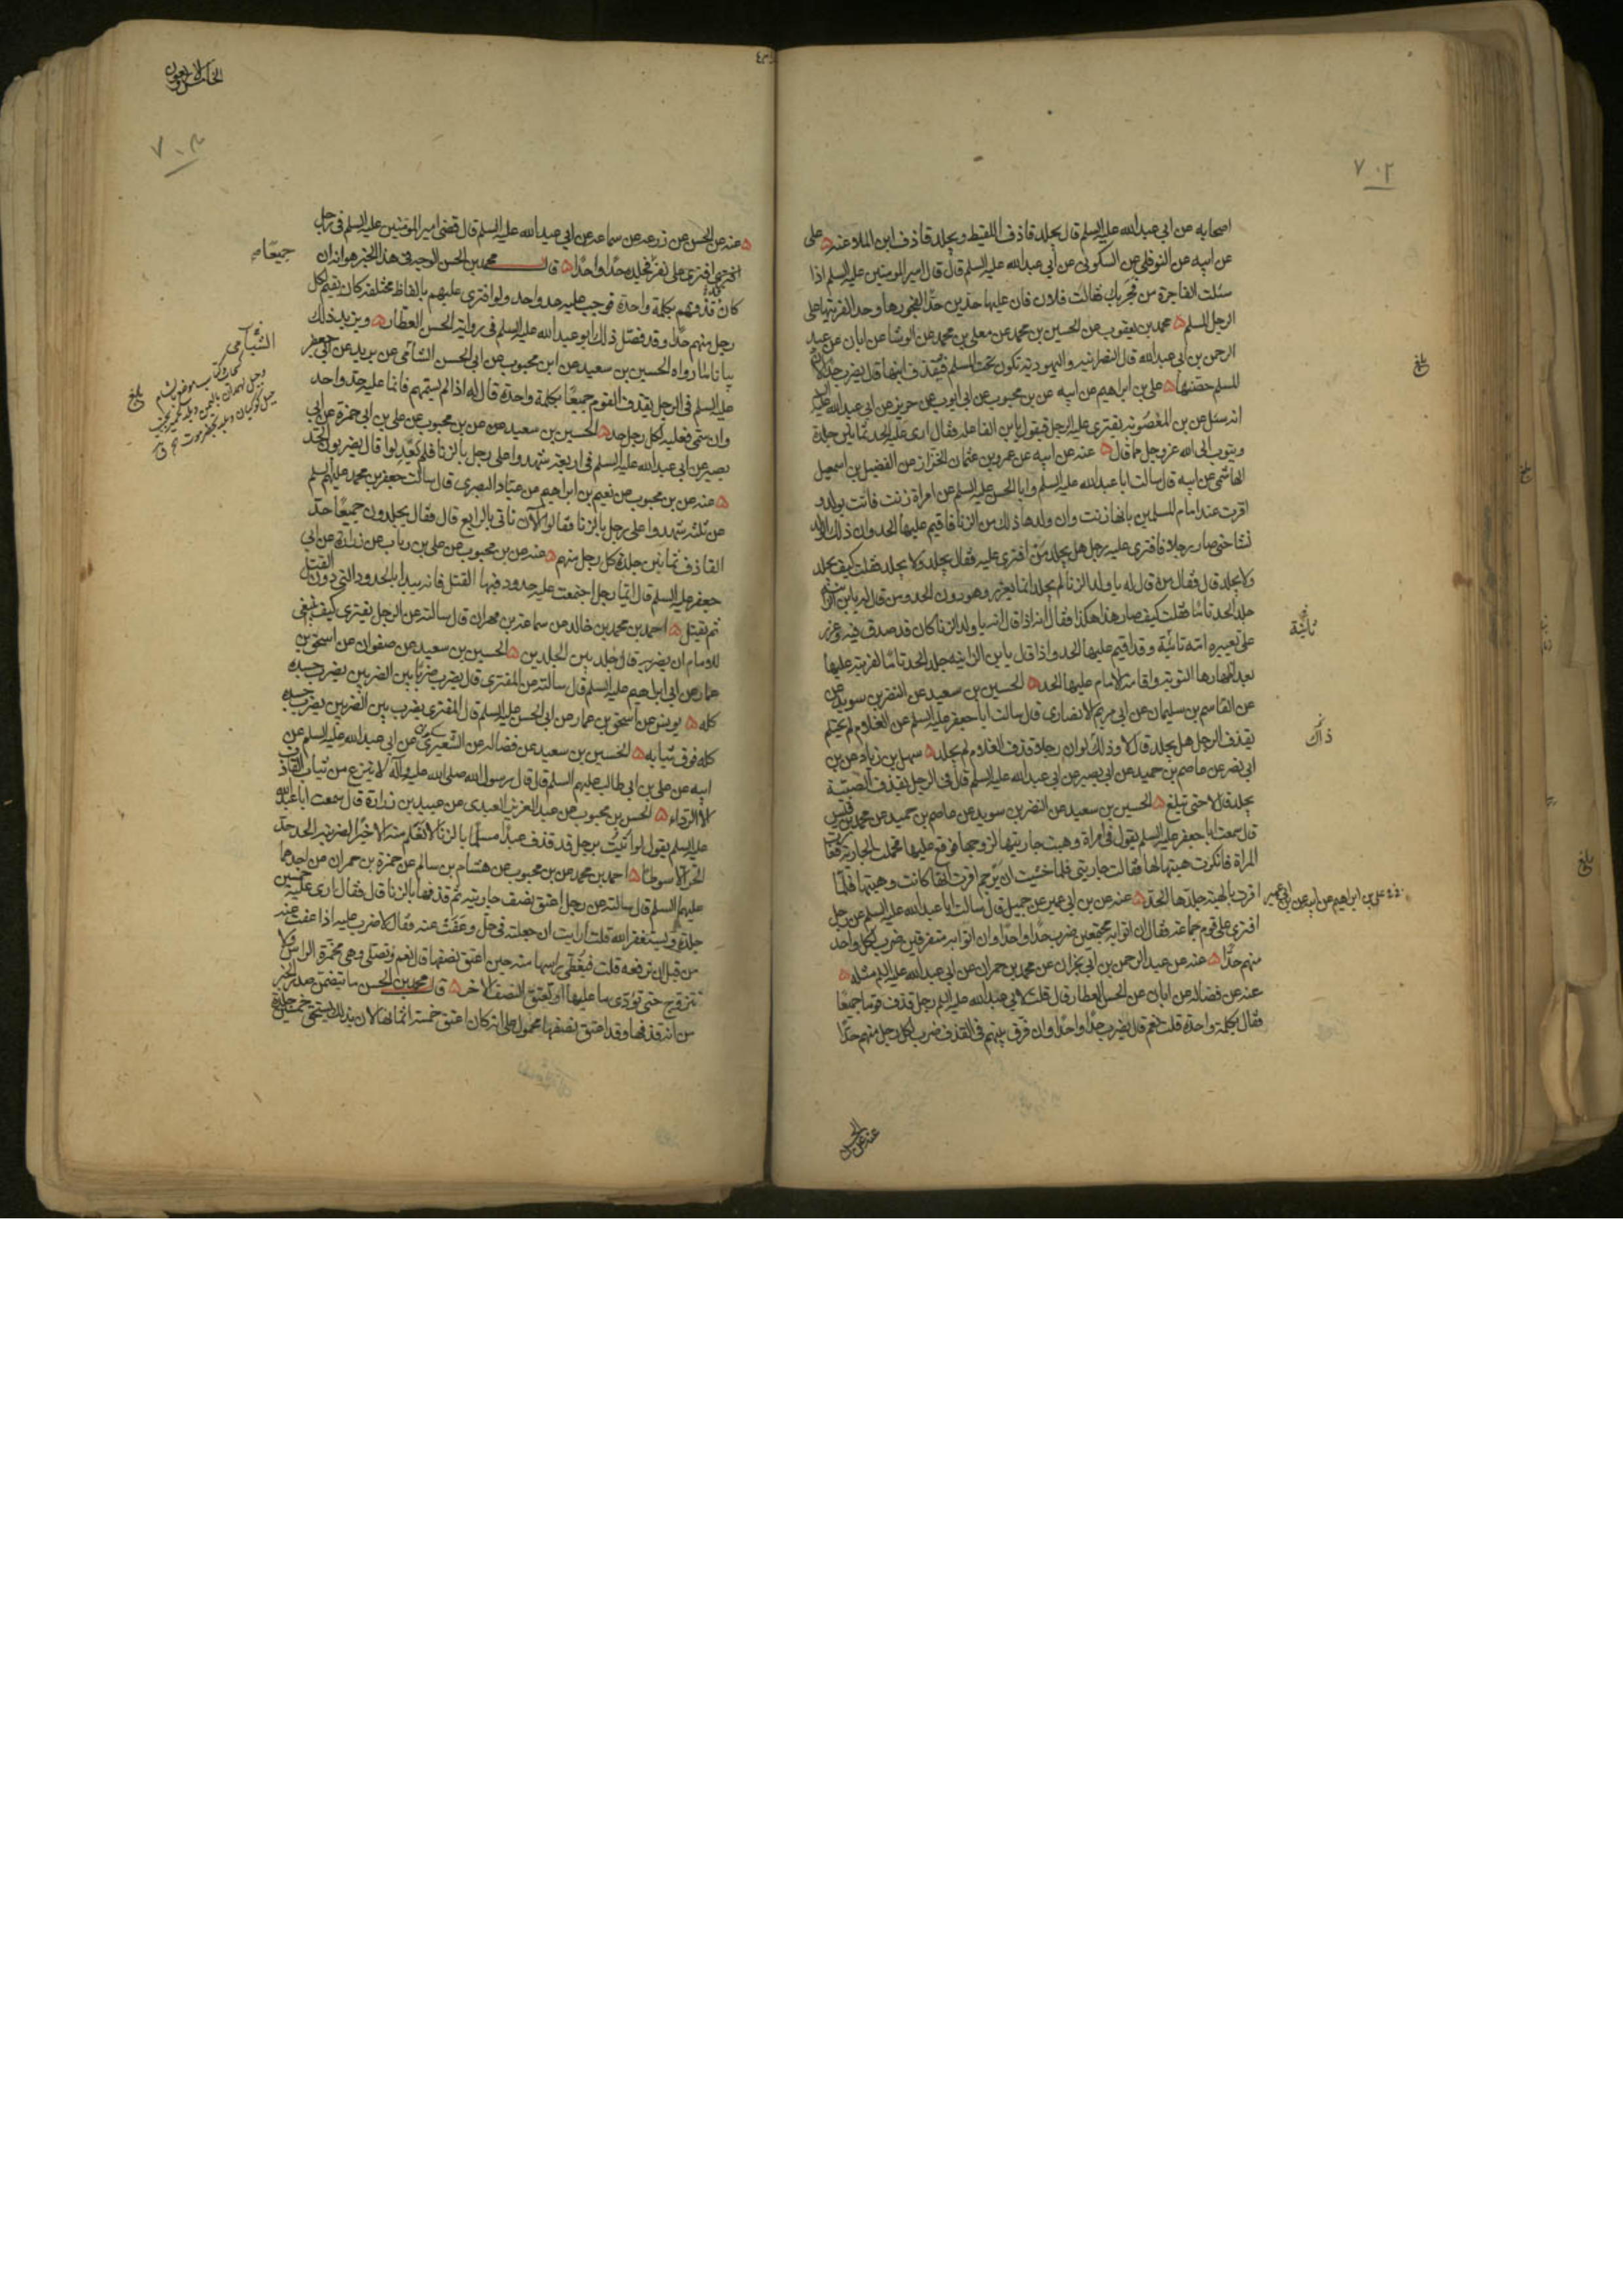 ٧٠٢
اصحابه عن ابي عبد الله عليه السلم قال يجلد قاذف اللقيط ويجلد قاذف ابن الملاعنة ۵ علي
عن ابيه عن النوفلي عن السكوني عن ابي عبد الله عليه السلم قال قال امير المومنين عليه السلم اذا
سئلت الفاجرة من فجر بك فقالت فلان فان عليها حدين حدا لفجورها وحدا لفريتها على
الرجل المسلم ۵ محمد بن يعقوب عن الحسين بن محمد عن معلى بن محمد عن الوشا عن ابان عن عبد
الرحمن بن ابي عبد الله قال النصرانية واليهودية تكون تحت المسلم فيقذف ابنها قال يضرب حدا لان
المسلم حصنها ۵ علي بن ابراهيم عن ابيه عن بن محبوب عن ابي ايوب عن حريز عن ابي عبد الله عليه السلم
انه سئل عن بن المغصوبة يفتري عليه الرجل فيقول يا بن الفاعلة فقال ارى عليه الحد ثمانين جلدة
ويتوب الى الله عز وجل مما قال ۵ عنه عن ابيه عن عمرو بن عثمان الخزاز عن الفضيل بن اسمعيل
الهاشمي عن ابيه قال سالت ابا عبد الله عليه السلم وابا الحسن عليه السلم عن امراة زنت فاتت بولد و
اقرت عند امام المسلمين بانها زنت وان ولدها ذلك من الزنا فاقيم عليها الحد وان ذلك الولد
نشا حتى صار رجلا فافترى عليه رجل هل يجلد من افترى عليه فقال يجلد ولا يجلد فقلت كيف يجلد
ولا يجلد قال فقال من قال له يا ولد الزنا لم يجلد انما يعزر وهو دون الحد ومن قال له يا بن الزانية
جلد الحد تاما فقلت كيف صار هذا هكذا فقال انه اذا قال له يا ولد الزنا كان قد صدق فيه وعزر
على تعييره امه ثانية وقد اقيم عليها الحد واذا قال يا بن الزانية جلد الحد تاما لفريته عليها
بعد اظهارها التوبة واقامة الامام عليها الحد ۵ الحسين بن سعيد عن النضر بن سويد
عن القاسم بن سليمان عن ابي مريم الانصاري قال سالت ابا جعفر عليه السلم عن الغلام لم يحتلم
يقذف الرجل هل يجلد قال لا وذلك لو ان رجلا قذف الغلام لم يجلد ۵ سهل بن زياد عن بن
ابي نصر عن عاصم بن حميد عن ابي بصير عن ابي عبد الله عليه السلم قال في الرجل يقذف الصبية
يجلد قال لا حتى تبلغ ۵ الحسين بن سعيد عن النضر بن سويد عن عاصم بن حميد عن محمد بن قيس
قال سمعت ابا جعفر عليه السلم يقول في امراة وهبت جاريتها لزوجها فوقع عليها فحملت الجارية
المراة فانكرت هبتها لها فقالت جاريتي فلما خشيت ان يرجم اقرت انها كانت وهبتها فلما
اقرت بالهبة جلدها الحد ۵ عنه عن بن ابي عمير عن جميل قال سالت ابا عبد الله عليه السلم عن رجل
افترى على قوم جماعة فقال ان اتوا به مجتمعين ضرب حدا واحدا وان اتوا به متفرقين ضرب لكل واحد
منهم حدا ۵ عنه عن عبد الرحمن بن ابي نجران عن محمد بن حمران عن ابي عبد الله عليه السلم مثله ۵
عنه عن فضالة عن ابان عن الحسن العطار قال قلت لابي عبد الله عليه السلم رجل قذف قوما جميعا
فقال بكلمة واحدة قلت نعم قال يضرب حدا واحدا وان فرق بينهم في القذف ضرب لكل رجل منهم حدا
بلغ
ثانية
ذاك
علي بن ابراهيم عن ابيه عن ابن ابي عمير
عنه عن الحسن
٧٠٣
عنه عن الحسن عن زرعة عن سماعة عن ابي عبد الله عليه السلم قال قضى امير المومنين عليه السلم في رجل
افترى على نفر فجلده حدا واحدا ۵ قال محمد بن الحسن الوجه في هذا الخبر هو انه ان
كان قذفهم بكلمة واحدة فوجب عليه حد واحد ولو افترى عليهم بالفاظ مختلفة كان يقيم لكل
رجل منهم حدا وقد فصل ذلك ابو عبد الله عليه السلم في رواية الحسن العطار ۵ ويزيد ذلك
بيانا ما رواه الحسين بن سعيد عن ابن محبوب عن ابي الحسن الشامي عن بريد عن ابي جعفر
عليه السلم في الرجل يقذف القوم جميعا بكلمة واحدة قال له اذا لم يسمهم فانما عليه حد واحد
وان سمى فعليه لكل رجل حد ۵ الحسين بن سعيد عن بن محبوب عن علي بن ابي حمزة عن ابي
بصير عن ابي عبد الله عليه السلم في اربعة شهدوا على رجل بالزنا فلم يعدلوا قال يضربون الحد
۵ عنه عن بن محبوب عن نعيم بن ابراهيم عن عباد البصري قال سالت جعفر بن محمد عليهم السلم
عن ثلثة شهدوا على رجل بالزنا فقالوا الآن ناتي بالرابع قال فقال يجلدون جميعا حد
القاذف ثمانين جلدة كل رجل منهم ۵ عنه عن بن محبوب عن علي بن رياب عن زرارة عن ابي
جعفر عليه السلم قال ايما رجل اجتمعت عليه حدود فيها القتل فانه يبدا بالحدود التي دون القتل
ثم يقتل ۵ احمد بن محمد بن خالد عن سماعة بن مهران قال سالته عن الرجل يفتري كيف ينبغي
للامام ان يضربه قال جلد بين الجلدين ۵ الحسين بن سعيد عن صفوان عن اسحق بن
عمار عن ابي ابراهيم عليه السلم قال سالته عن المفتري قال يضرب ضربا بين الضربين يضرب جسده
كله ۵ يونس عن اسحق بن عمار عن ابي الحسن عليه السلم قال المفتري يضرب بين الضربين يضرب جسده
كله فوق ثيابه ۵ الحسين بن سعيد عن فضالة عن الشعيري عن ابي عبد الله عليه السلم عن
ابيه عن علي بن ابي طالب عليهم السلم قال قال رسول الله صلى الله عليه وآله لا ينزع من ثياب القاذف
الا الرداء ۵ الحسن بن محبوب عن عبد العزيز العبدي عن عبيد بن زرارة قال سمعت ابا عبد الله
عليه السلم يقول لو اتيت برجل قد قذف عبدا مسلما بالزنا لا نعلم منه الا خيرا لضربته الحد حد
الحر الا سوطا ۵ احمد بن محمد عن بن محبوب عن هشام بن سالم عن حمزة بن حمران عن احدهما
عليهما السلم قال سالته عن رجل اعتق نصف جاريته ثم قذفها بالزنا قال فقال ارى عليه خمسين
جلدة ويستغفر الله قلت ارايت ان جعلته في حل وعفت عنه فقال لا ضرب عليه اذا عفت عنه
من قبل ان ترفعه قلت فتغطي راسها منه حين اعتق نصفها قال نعم وتصلي وهي مخمرة الراس ولا
تتزوج حتى تؤدي ما عليها او يعتق النصف الاخر ۵ قال محمد بن الحسن ما تضمن صدر الخبر
من انه قذفها وقد اعتق نصفها محمول على انه كان اعتق خمسة اثمانها لان بذلك يستحق خمسين جلدة
جميعا
الشبامي
بلغ